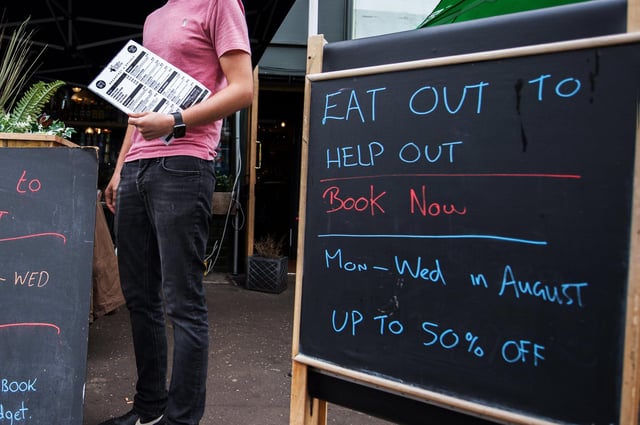 to
- WED
BOOK
dget.
EAT OUT TO
HELP OUT
BOOK NOW
MON - Wed in AUGUST
UP TO 50% OFF